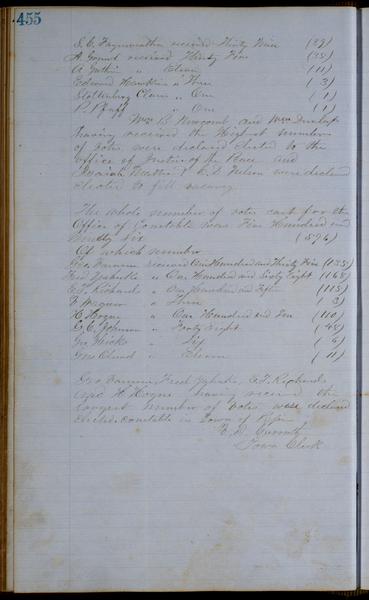 455
S. C. Fayerweather received Thirty Nine (39)
A. Grund received Thirty Five (35)
A Guthin " Eleven (11)
Edward Hawkins " Three (3)
Stoltenberg Claus " One (1)
P. Pfaff " One (1)
Wm B. Newcomb and Wm Dunlap
having received the Highest number
of votes, were declared elected to the
office of Justice of the Peace and
C. D. Nelson were declared
elected to fill vacancy.
The whole number of votes cast for the
Office of Constable was Five Hundred and
Ninety Six (596)
Of which number
Geo. received One Hundred and Thirty Five (135)
Fred " One Hundred and Sixty Eight (168)
E. F. Richards " One Hundred and Fifteen (115)
F. Wagner " Three (3)
H. Hogue " One Hundred and Ten (110)
C. Johnson " Forty Eight (48)
Geo Hicks " Six (6)
Geo " Eleven (11)
Geo Fred E. F. Richards
and H. Hogue having received the
largest number of votes were declared
elected constable in Town of
Town Clerk